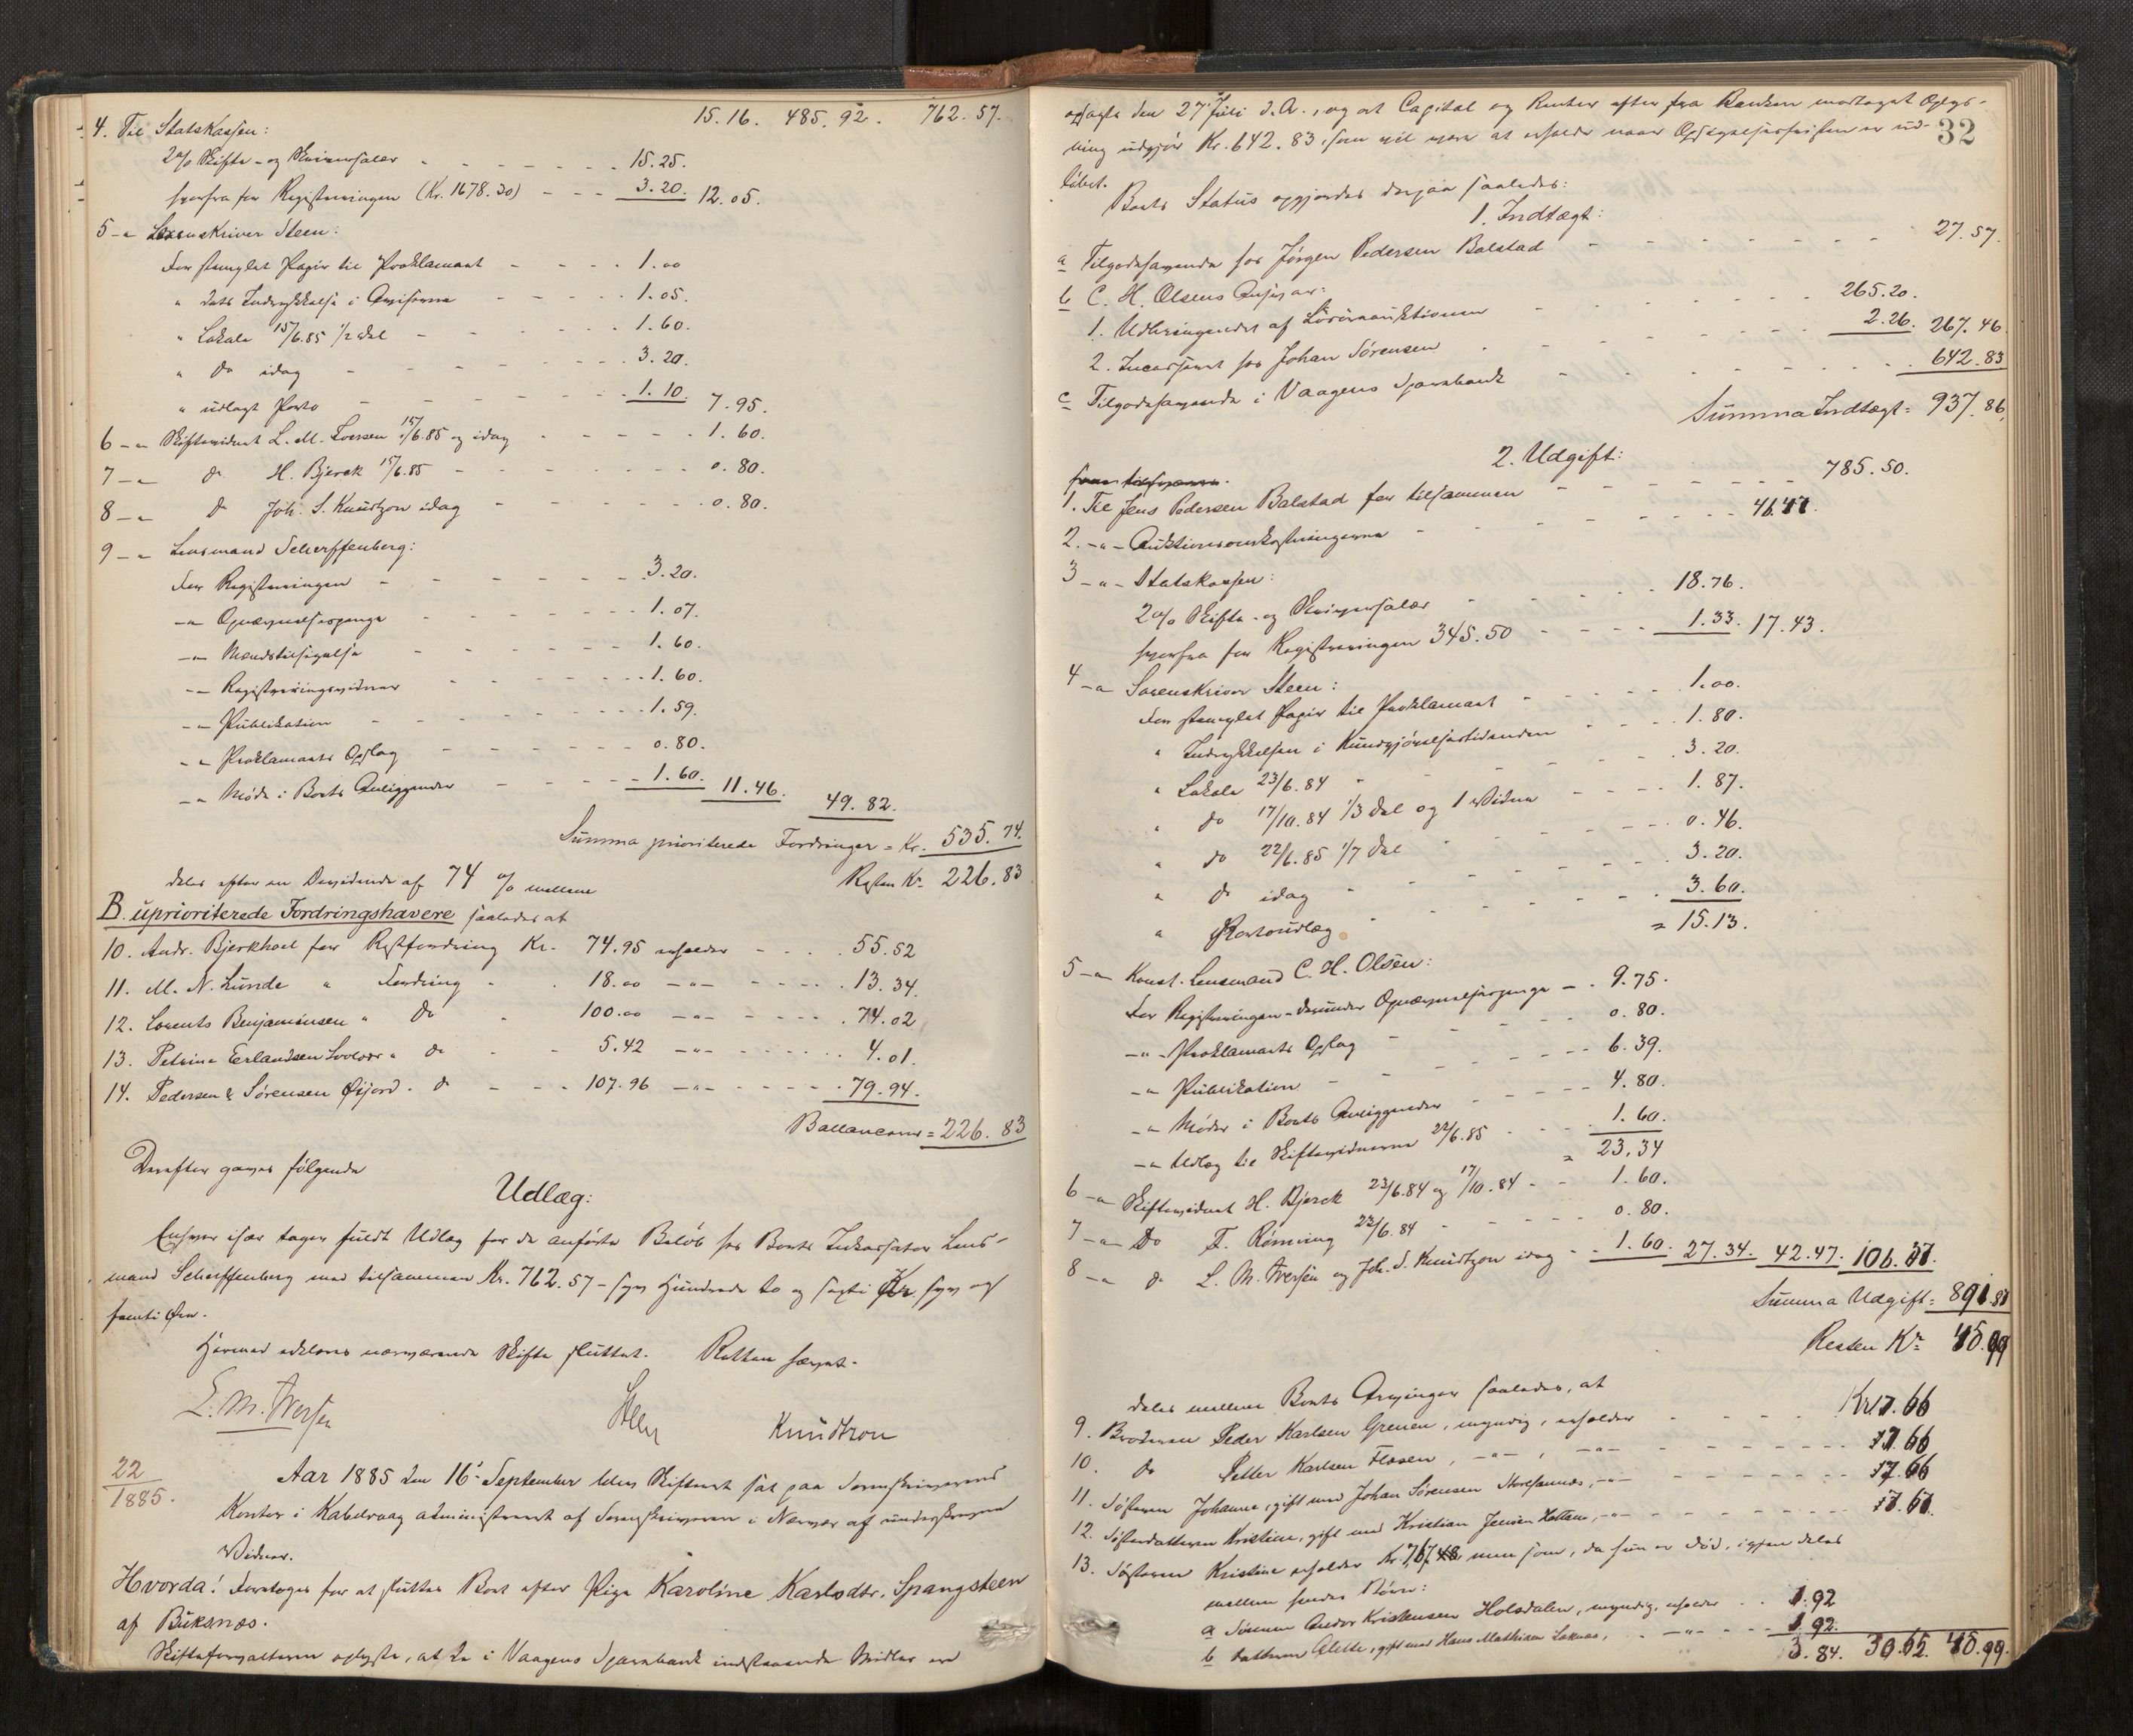 15.16. 485.92. 762.57.
4. Til Statskassen:
2% Skifte- og Skriversalær - - - 15.25.
herfra for Registreringen (Kr. 1678.30) - - - 3.20. 12.05.
5 -"- Sorenskriver Steen:
For stemplet Papir til Proklamaet - - - 1.00
" dets Indrykkelse i Aviserne - - - 1.05.
" Lokale 15/6.85 1/2 Del - - - 1.60.
" do idag - - - 3.20.
" udlagt Porto - - - 1.10. 7.95.
6 -"- Skiftevidnet L. M. Iversen 15/6.85 og idag - - - 1.60.
7 -"- do H. Bjerck 15/6.85 - - - 0.80.
8 -"- do Joh. S. Knudtzon idag - - - 0.80.
9 -"- Lensmand Scherffenberg:
For Registreringen - - - 3.20.
-"- Opnævnelsespenge - - - 1.07.
-"- Mændstilsigelse - - - 1.60.
-"- Registreringsvidner - - - 1.60.
-"- Publikation - - - 1.59.
-"- Proklamaets Opslag - - - 0.80.
-"- Møde i Boets Anliggender - - - 1.60. 11.46. 49.82.
Summa prioriterede Fordringer = Kr. 535.74.
Resten Kr. 226.83
deles efter en Dividende af 74 % mellem
B. uprioriterede Fordringshavere saaledes at
10. Andr. Bjerkhoel for Restfordring Kr. 74.95 erholder - - - 55.52
11. M. N. Lunde " Fordring " 18.00 -"- - - - 13.34.
12. Lorents Benjaminsen " do " 100.00 -"- - - - 74.02
13. Petrine Erlandsen Svolvær " do - - 5.42 -"- - - - 4.01.
14. Pedersen & Sørensen Øijord " do - - 107.96 -"- - - - 79.94.
Ballancerer = 226.83
Derefter gaves følgende
Udlæg:
Enhver især tager fuldt Udlæg for de anførte Beløb hos Boets Inkassator Lens-
mand Scherffenberg med tilsammen Kr. 762.57 - syv Hundrede to og sexti Kr. syv og
femti Øre.
Hermed erklæres nærværende Skifte sluttet. Retten hævet.
L. M. Iversen Steen Knudtzon
22/1885. Aar 1885 den 16de September blev Skifteret sat paa Sorenskriverens
Kontor i Kabelvaag administreret af Sorenskriveren i Nærvær af underskrevne
Vidner.
Hvorda! Foretoges for at slutte Boet efter Pige Karoline Karlsdtr. Spangsteen
af Buksnæs.
Skifteforvalteren oplyste, at de i Vaagens Sparebank indstaaende Midler ere
32
opsagte den 27de Juli d.A., og at Capital og Renter efter fra Banken modtaget Opgø-
ning udgjør Kr. 642.83, som vil være at erholde naar Opsigelsesfristen er ud-
løbet.
Boets Status opgjordes derpaa saaledes:
1. Indtægt:
a Tilgodehavende hos Jørgen Pedersen Balstad - - - 27.57.
b C. H. Olsens Ansvar:
1. Udbringendet af Løsøreauktionen - - - 265.20.
2. Incasseret hos Johan Sørensen - - - 2.26. 267.46.
c Tilgodehavende i Vaagens Sparebank - - - 642.83
Summa Indtægt = 937.86.
2. Udgift:
1. Til Jens Pedersen Balstad for tilsammen - - - 785.50.
2. -"- Auktionsomkostningerne - - - 46.47.
3 -"- Statskassen:
2% Skifte- og Skriversalær - - - 18.76.
herfra for Registreringen 345.50 - - - 1.33. 17.43.
4 -"- Sorenskriver Steen:
For stemplet Papir til Proklamaet - - - 1.00.
" Indrykkelsen i Kundgjørelsestidenden - - - 1.80.
" Lokale 23/6.84 - - - 3.20.
" do 17/10.84 1/3 Del og 1 Vidne - - - 1.87.
" do 22/6.85 1/7 Del - - - 0.46.
" do idag - - - 3.20.
" Portoudlæg - - - 3.60.
= 15.13.
5 -"- Konst. Lensmand C. H. Olsen:
For Registreringen - derunder Opnævnelsespenge - - 9.75.
-"- Proklamaets Opslag - - - 0.80.
-"- Publikation - - - 6.39.
-"- Møder i Boets Anliggender - - - 4.80.
-"- Udlæg til Skiftevidnerne 22/6.85 - - - 1.60.
= 23.34
6 -"- Skiftevidnet H. Bjerck 23/6.84 og 17/10.84 - - 1.60.
7 -"- Do F. Rønning 23/6.84 - - - 0.80.
8 -"- do L. M. Iversen og Joh. S. Knudtzon idag - - 1.60. 27.34. 42.47. 106.37.
Summa Udgift = 891.87
Resten Kr. 45.99
deles mellem Boets Arvinger saaledes, at
9. Broderen Peder Karlsen Grenen, myndig, erholder - - - Kr. 7.66
10. do Petter Karlsen Flæsen, -"-, -"- - - - 7.66
11. Søsteren Johanna, gift med Johan Sørensen Storfannæs, -"- - - - 7.66
12. Søsterdatteren Kristine, gift med Kristian Jensen Hatten, -"- - - -
13. Søsteren Kristine erholder Kr. men som, da hun er død, igjen deles
mellem hendes Børn:
a Sønnen Andor Kristensen Holsdalen, myndig, erholder - - 1.92
b Datteren Alette, gift med Hans Mathisen Laknes, - -"- - - 1.92.
3.84. 30.65. 45.99.